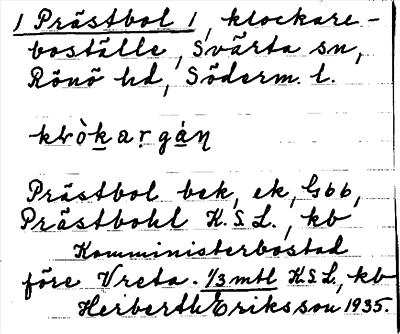 1 Prästbol 1, klockare-
boställe, Svärta sn,
Rönö hd, Söderm. l.
klòkargáṇ
Prästbol bek, ek, G66,
Prästbohl K.S.L., kb
Komministerbostad
före Vreta. 1/3 mtl K.S.L., kb
Herberth Eriksson 1935.